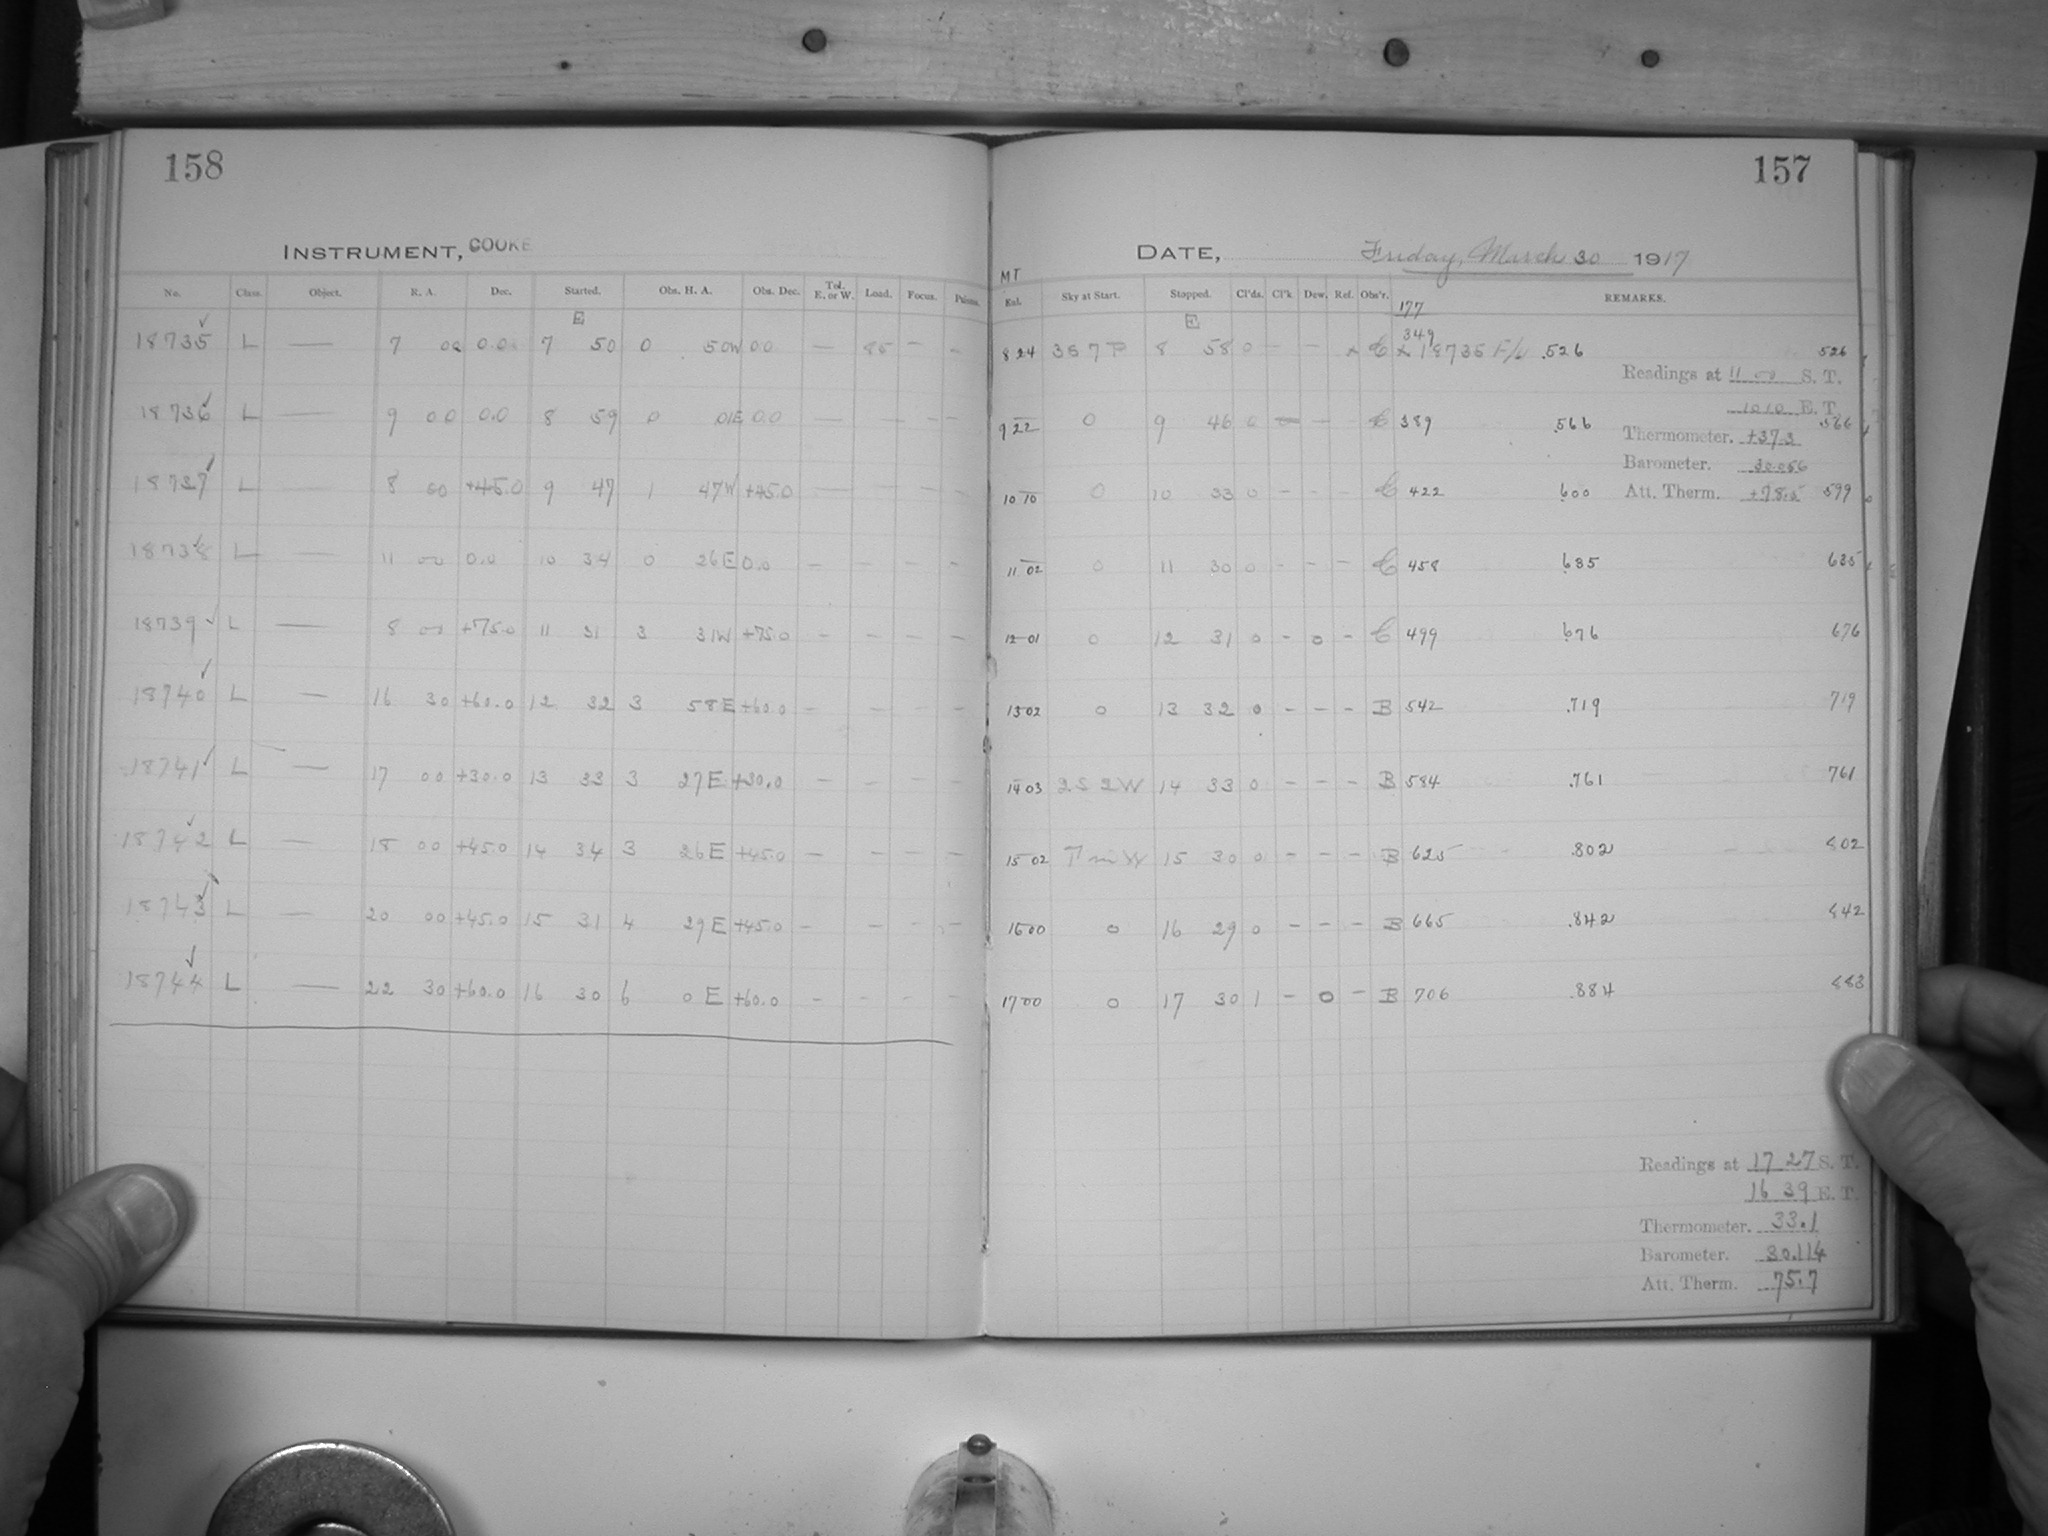 158
INSTRUMENT, COOKE
No. Class. Object. R. A. Dec. Started. Obs. H. A. Obs. Dec. Tel. E. or W. Load. Focus. Prisms.
E
18735 L — 7 00 0.0 7 50 0 50W 0.0 — 85 – –
18736 L — 9 00 0.0 8 59 0 01E 0.0 — — – –
18737 L — 8 00 +45.0 9 47 1 47W +45.0 — — – –
18738 L — 11 00 0.0 10 34 0 26E 0.0 – – – –
18739 L — 8 00 +75.0 11 31 3 31W +75.0 – – – –
18740 L — 16 30 +60.0 12 32 3 58E +60.0 – – – –
18741 L — 17 00 +30.0 13 33 3 27E +30.0 – – – –
18742 L — 18 00 +45.0 14 34 3 26E +45.0 – – – –
18743 L — 20 00 +45.0 15 31 4 29E +45.0 – – – –
18744 L — 22 30 +60.0 16 30 6 0E +60.0 – – – –
157
DATE, Friday, March 30 1917
MT
Exl. Sky at Start. Stopped. Cl'ds. Cl'k. Dew. Ref. Obs'r. REMARKS.
177
E
349
8 24 3S 7P 8 58 0 – – x C x 18735 F/L .526 526
Readings at 11 00 S. T.
10 10 E. T.
9 22 0 9 46 0 – – C 389 .566 566
Thermometer. +37.3
Barometer. 30.056
10 10 0 10 33 0 – – – C 422 .600 Att. Therm. +78.5 599
11 02 0 11 30 0 – – – C 458 .635 635
12 01 0 12 31 0 – 0 – C 499 .676 676
13 02 0 13 32 0 – – – B 542 .719 719
14 03 2S 2W 14 33 0 – – – B 584 .761 761
15 02 15 30 0 – – – B 625 .802 802
16 00 0 16 29 0 – – – B 665 .842 842
17 00 0 17 30 1 – 0 – B 706 .884 883
Readings at 17 27 S. T.
16 39 E. T.
Thermometer. 33.1
Barometer. 30.114
Att. Therm. 75.7